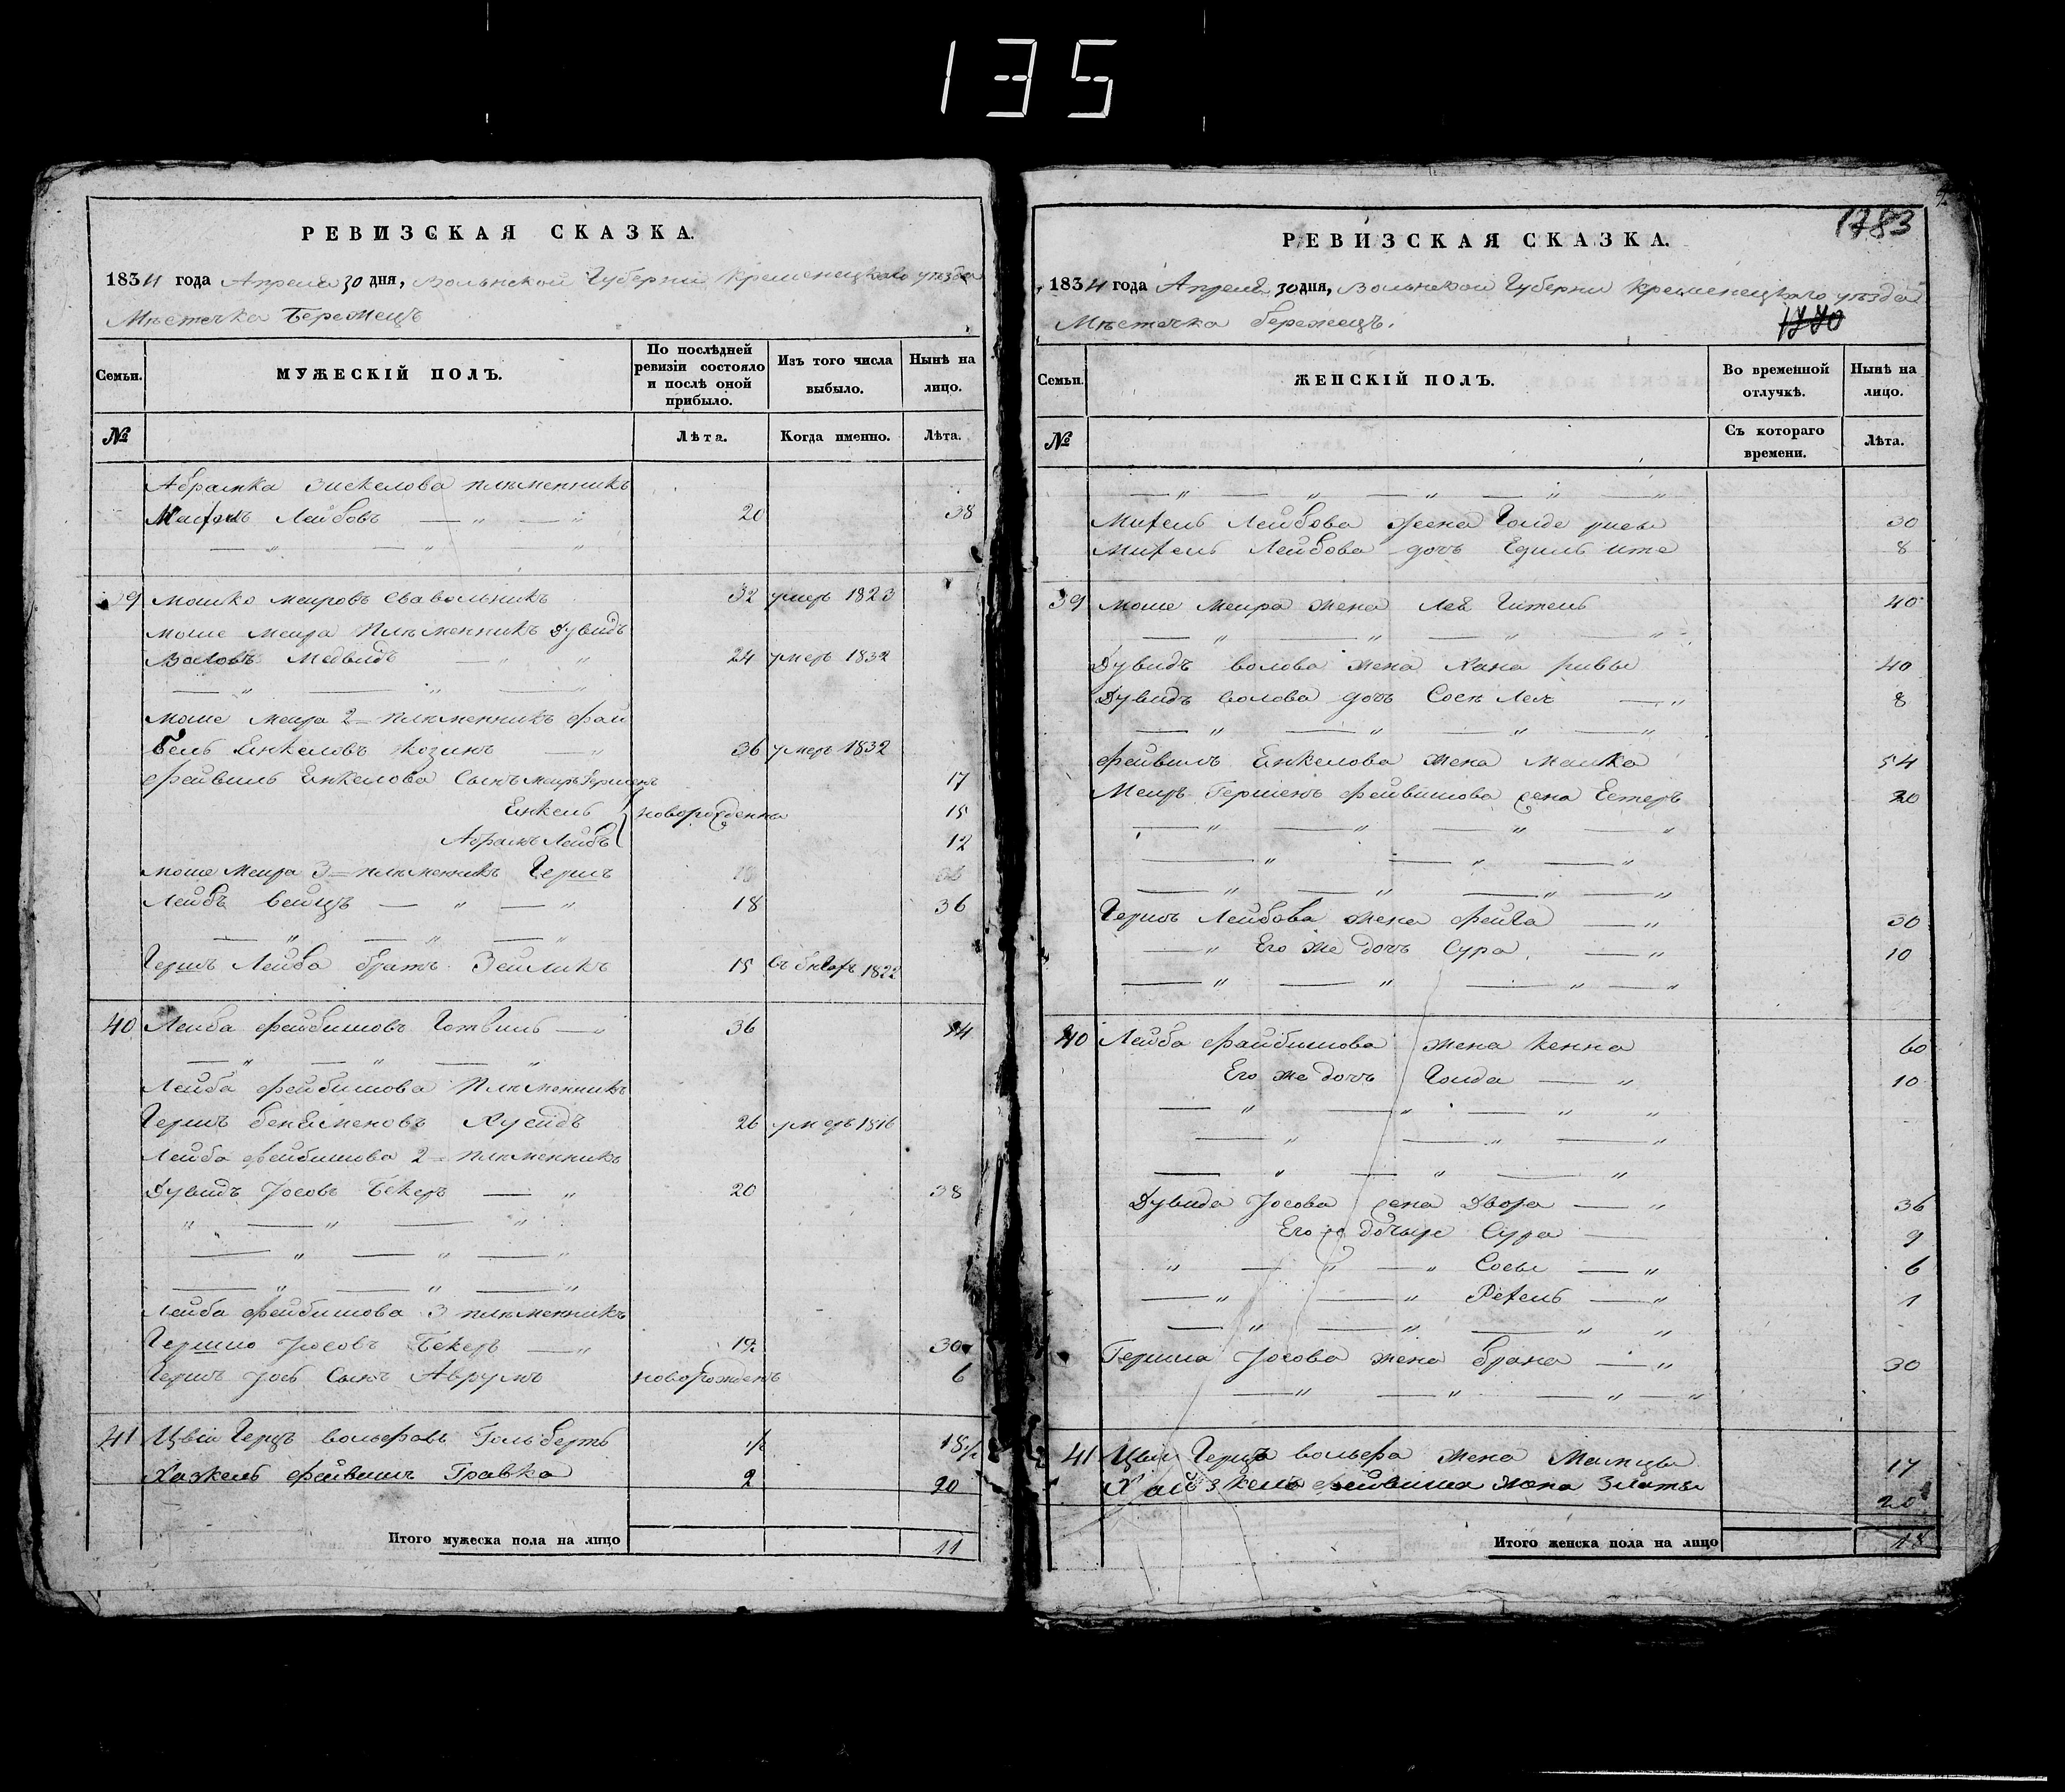 135
РЕВИЗСКАЯ СКАЗКА.
1834 года Апреля 30 дня, Волынской Губернии Кременецкаго уезда
Местечка Бережецъ
Семьи. МУЖЕСКІЙ ПОЛЪ. По послѣдней ревизіи состояло и послѣ оной прибыло. Изъ того числа выбыло. Нынѣ на лицо.
№ Лѣта. Когда именно. Лѣта.
Абрамка племменникъ
Лейбовъ — " — " 20 38
— " — " — "
39 Мошко Меировъ Свавольникъ 32 умеръ 1823
Моше Меира Племменникъ Дувидъ
Воловъ Медвидъ — " " 24 умеръ 1832
— " — " — "
Моше Меира 2 — племменникъ Фай
бель Енкеловъ Козинъ — " 36 умеръ 1832
Фейвиль Енкелова Сынъ Меиръ Гершенъ 17
Енкель новорожденны 15
Абрамъ Лейбъ 12
Моше Меира 3 — племменникъ Гершъ
Лейбъ Вейцъ — " — " 18 36
— " — " — "
Гершъ Лейба братъ Зейликъ 15 1822
40 Лейба Фейбишовъ — " 36 54
— " — " — "
Лейба Фейбишова Племменникъ
Гершъ Беняменовъ Хусидъ 26 умеръ 1816
Лейба Фейбишова 2 — племменникъ
Дувидъ Іосовъ Бекеръ — " 20 38
" — " — "
— " — " — "
— " — " — "
Лейба Фейбишова 3 племменникъ
Гершко Іосовъ Бекеръ — " 12 30
Гершъ Іось Сынъ Аврумъ новорожденъ 6
41 Цвии Герцъ Вольфовъ Гольбертъ 1/2 18 1/2
Хазкель Фейвишъ Гравка 2 20
Итого мужеска пола на лицо 11
1783
РЕВИЗСКАЯ СКАЗКА.
1834 года Апреля 30 дня, Волынской Губерни Кременецкаго уезда
Местечка Бережецъ. 1770
Семьи. ЖЕНСКІЙ ПОЛЪ. Во временной отлучкѣ. Нынѣ на лицо.
№ Съ котораго времени. Лѣта.
— " — " — " — " — "
Лейбова жена Голде 30
Лейбова дочь Ите 8
39 Моше Меира жена Лея Гитель 40
— " — " — " — "
Дувидъ Волова жена Хана Ривы 40
Дувидъ Волова дочь Сося Лея — " 8
— " — " — " — "
Фейвишъ Енкелова жена Малка 54
Меиръ Гершенъ Фейвишова жена Естеръ 20
— " — " — " — "
— " — " — "
— " — " — " — "
Гершъ Лейбова жена Фейга — " 30
— " Его же дочь Сура — " 10
— " — " — " — "
40 Лейба Файбишова жена Кенна 60
Его же дочь Голда — " 10
— " — " — " "
— " — " — "
— " — " — "
Дувида Іосова жена Двора — " 36
Его же дочыре Сура — 9
" — " — " Сосы — " 6
— " — " 1
— " — " — " "
Герша Іосова жена Брана — " 30
— " — " — " — "
41 Цвии Герцъ Вольфа жена 17
Хайзкель Фейвиша жена Златы 20
Итого женска пола на лицо 18